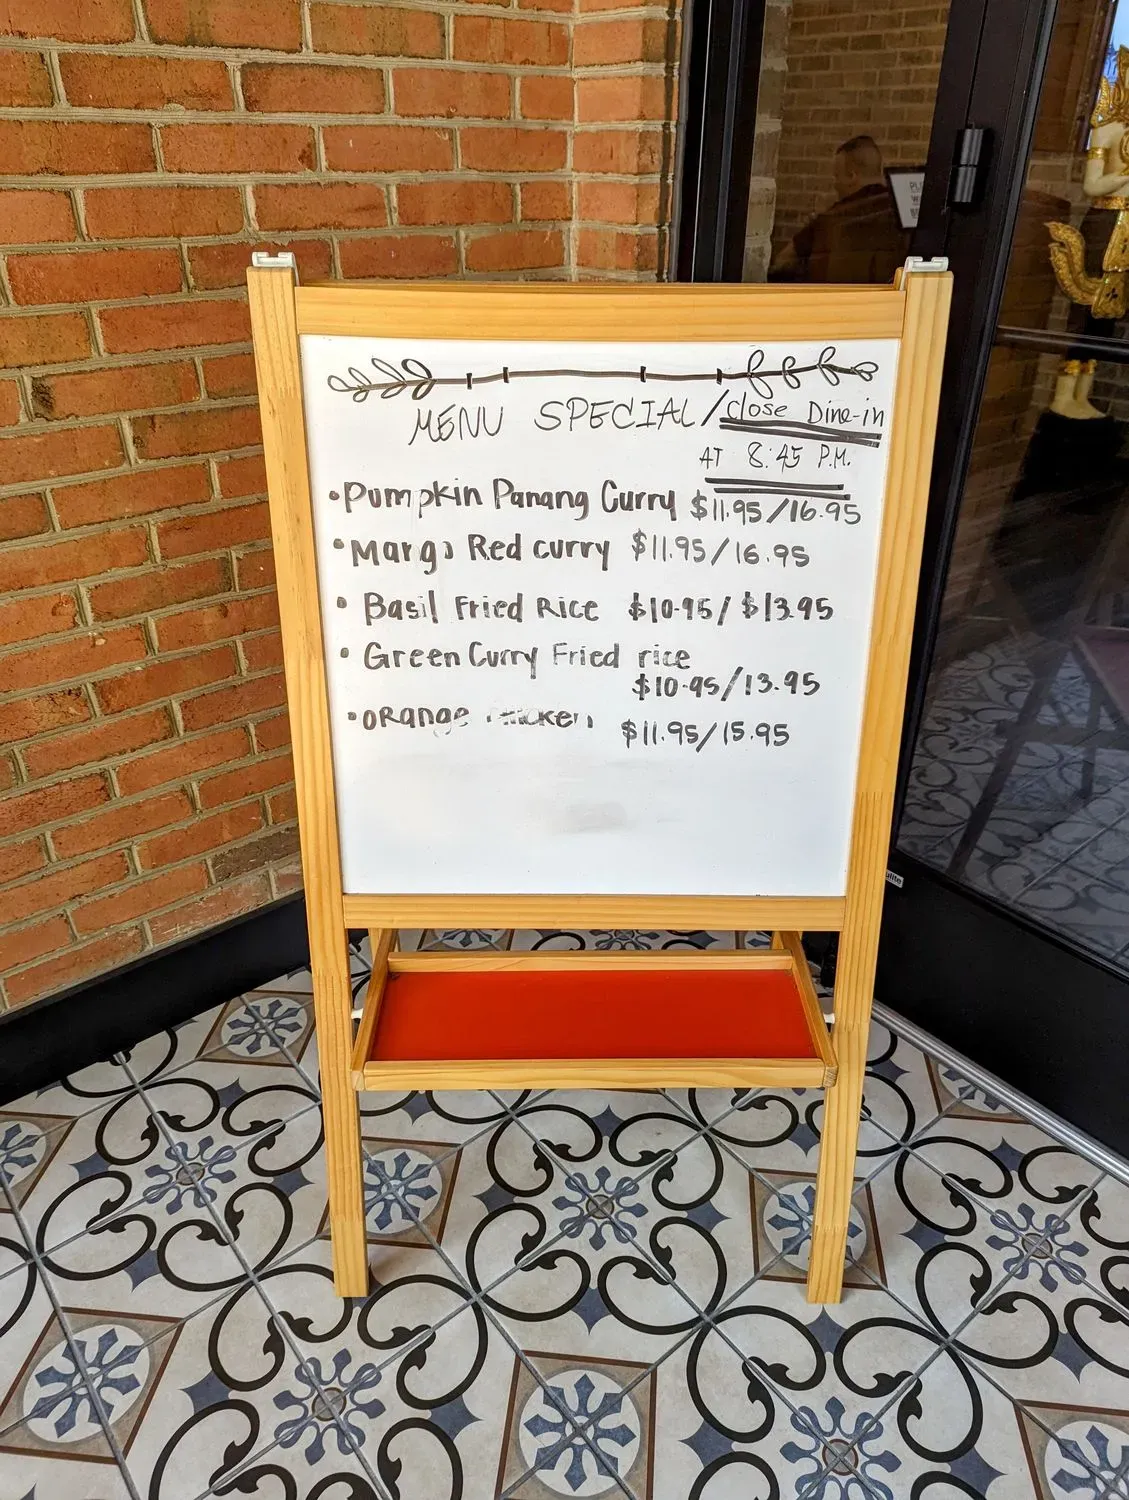 MENU SPECIAL/close Dine-in
AT 8:45 P.M.
•Pumpkin Panang Curry $11.95/16.95
•Mango Red curry $11.95/16.95
• Basil Fried Rice $10.95/$13.95
• Green Curry Fried rice
$10.95/13.95
•orange chicken $11.95/15.95